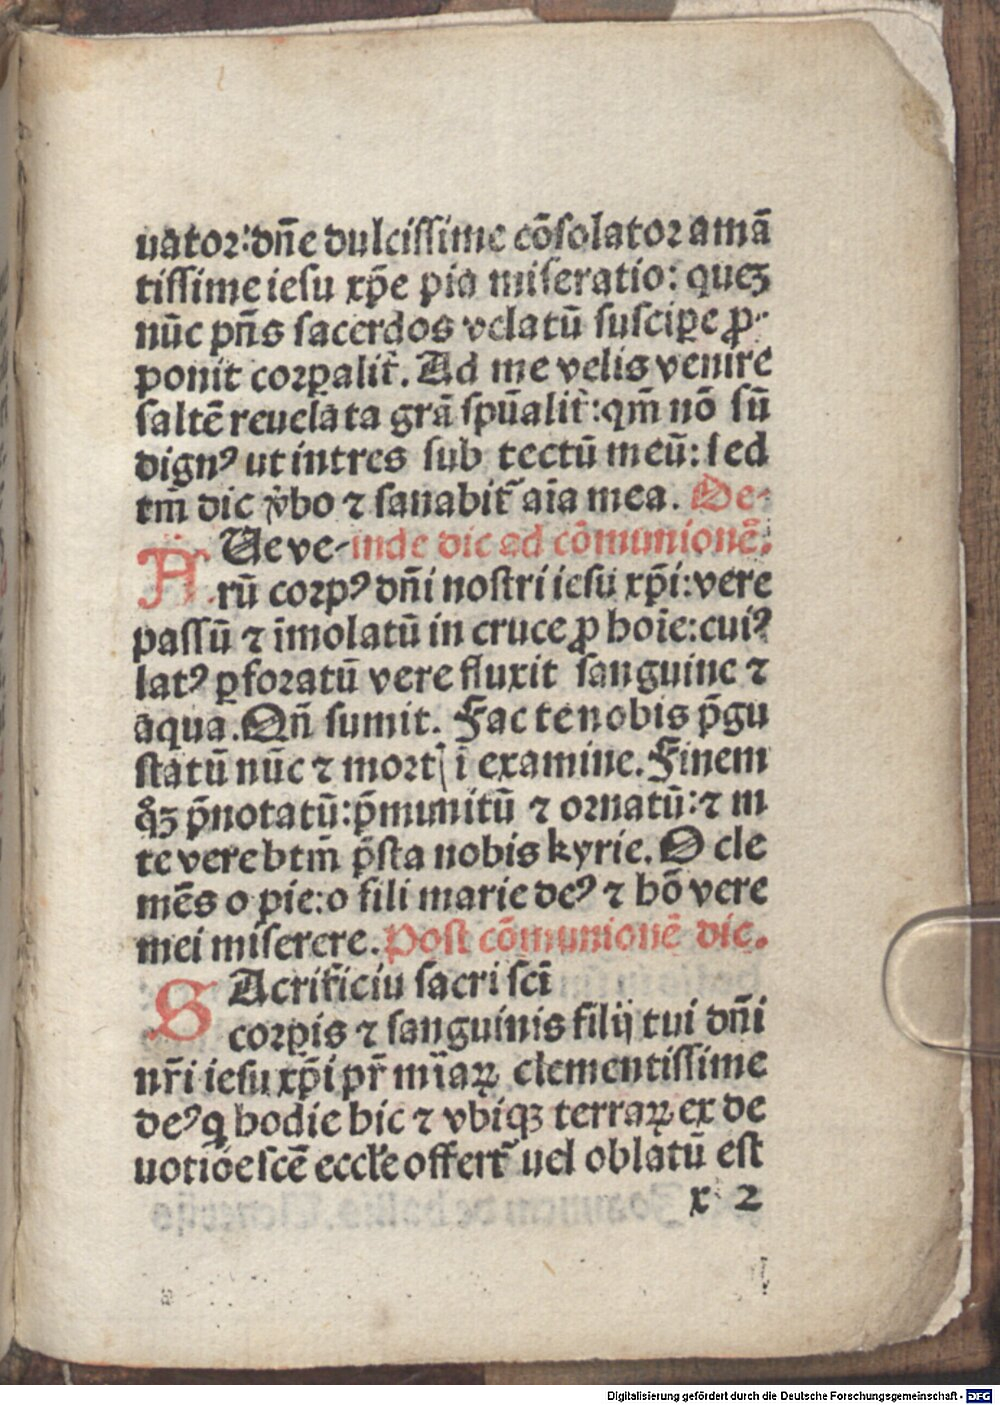 uator: dn̄e dulcissime cōsolator amā
tissime iesu xp̄e pia miseratio: queꝫ
nūc pn̄s sacerdos velatū suscipe ꝓ-
ponit corꝑalit̉. Ad me velis venire
saltē reuelata grā spūalit̉: qm̄ nō sū
dignꝰ ut intres sub tectū meū: sed
tm̄ dic v̉bo ⁊ sanabit᷑ aīa mea. De-
inde dic ad cōmunionē.
AUe ve-
rū corpꝰ dn̄i nostri iesu xp̄i: vere
passū ⁊ īmolatū in cruce ꝓ hoīe: cuiꝰ
latꝰ ꝑforatū vere fluxit sanguine ⁊
aqua. Qn̄ sumit. Fac te nobis p̄gu
statū nūc ⁊ mort| ī examine. Finem
q̊ꝫ p̄notatū: p̄munitū ⁊ ornatū: ⁊ m
te vere btm̄ p̄sta nobis kyrie. O cle
mēs o pie: o fili marie deꝰ ⁊ hō vere
mei miserere. Post cōmunionē dic.
SAcrificiu sacri scī
corꝑis ⁊ sanguinis filij tui dn̄i
nr̄i iesu xp̄i pr̄ mīaꝝ clementissime
deꝰ q hodie hic ⁊ vbiqꝫ terraꝝ ex de
uotiōe scē eccl̄e offert᷑ uel oblatū est
x 2
Digitalisierung gefördert durch die Deutsche Forschungsgemeinschaft - DFG